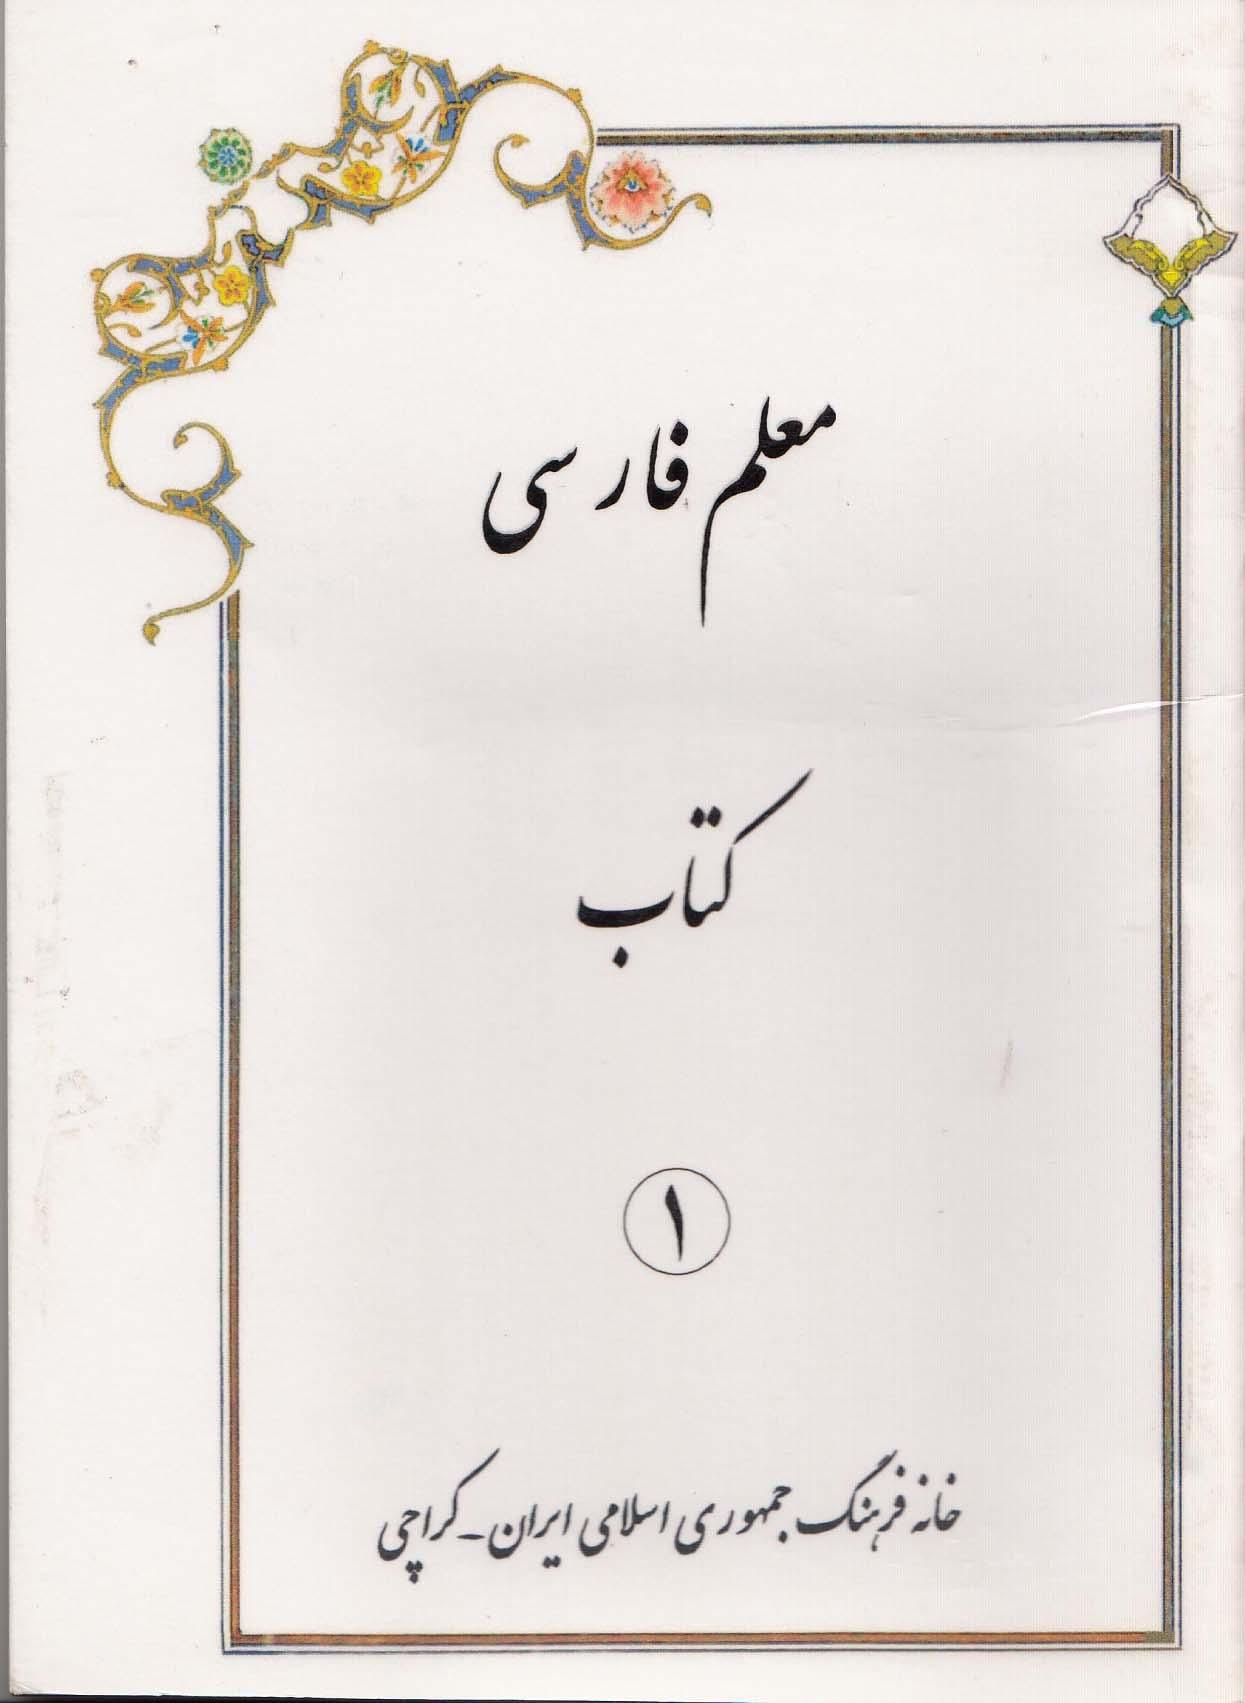 معلم فارسی
کتاب
۱
خانه فرهنگ جمهوری اسلامی ایران - کراچی